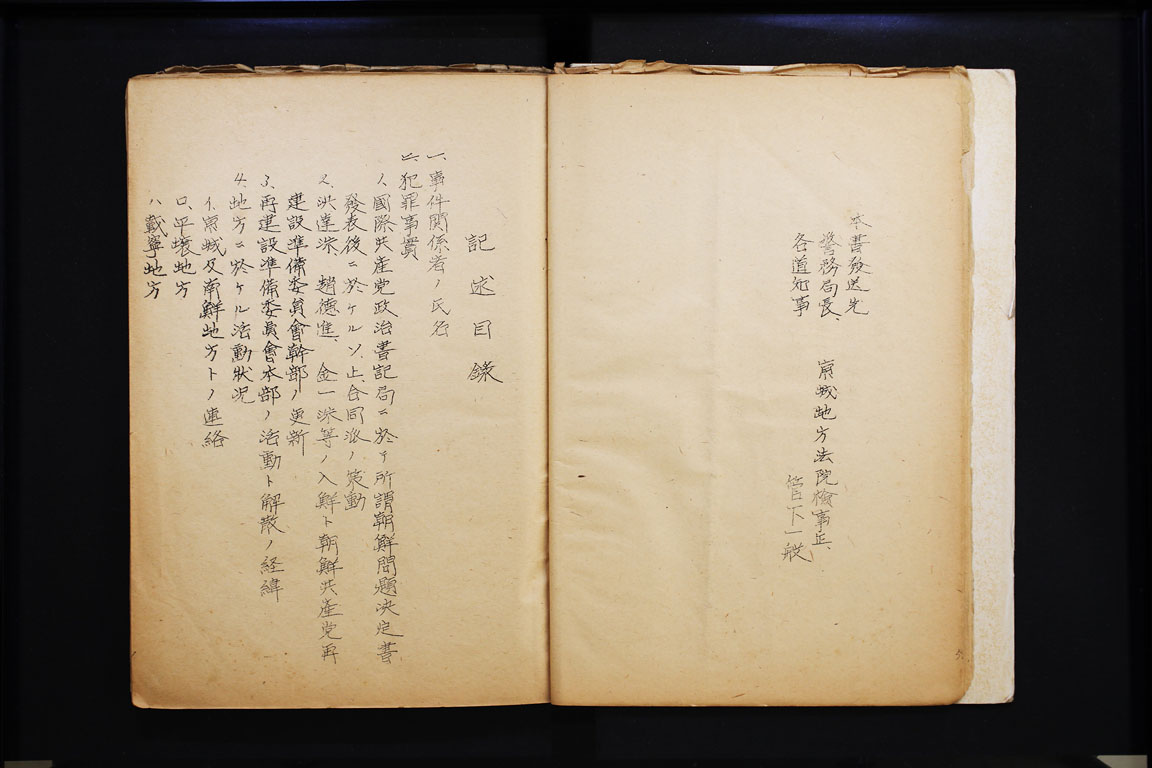 本書發送先
警務局長、 京城地方法院檢事正、
各道知事 管下一般
記述目錄
一、事件関係者ノ氏名
二、犯罪事實
1、國際共産党政治書記局ニ於テ所謂朝鮮問題決定書
發表後ニ於ケルソ上合同派ノ策動
2、洪達洙、趙德進、金一洙等ノ入鮮ト朝鮮共産党再
建設準備委員會幹部ノ更新
3、再建設準備委員會本部ノ活動ト解散ノ経緯
4、地方ニ於ケル活動狀況
イ、京城及南鮮地方トノ連絡
ロ、平壌地方
ハ、載寧地方